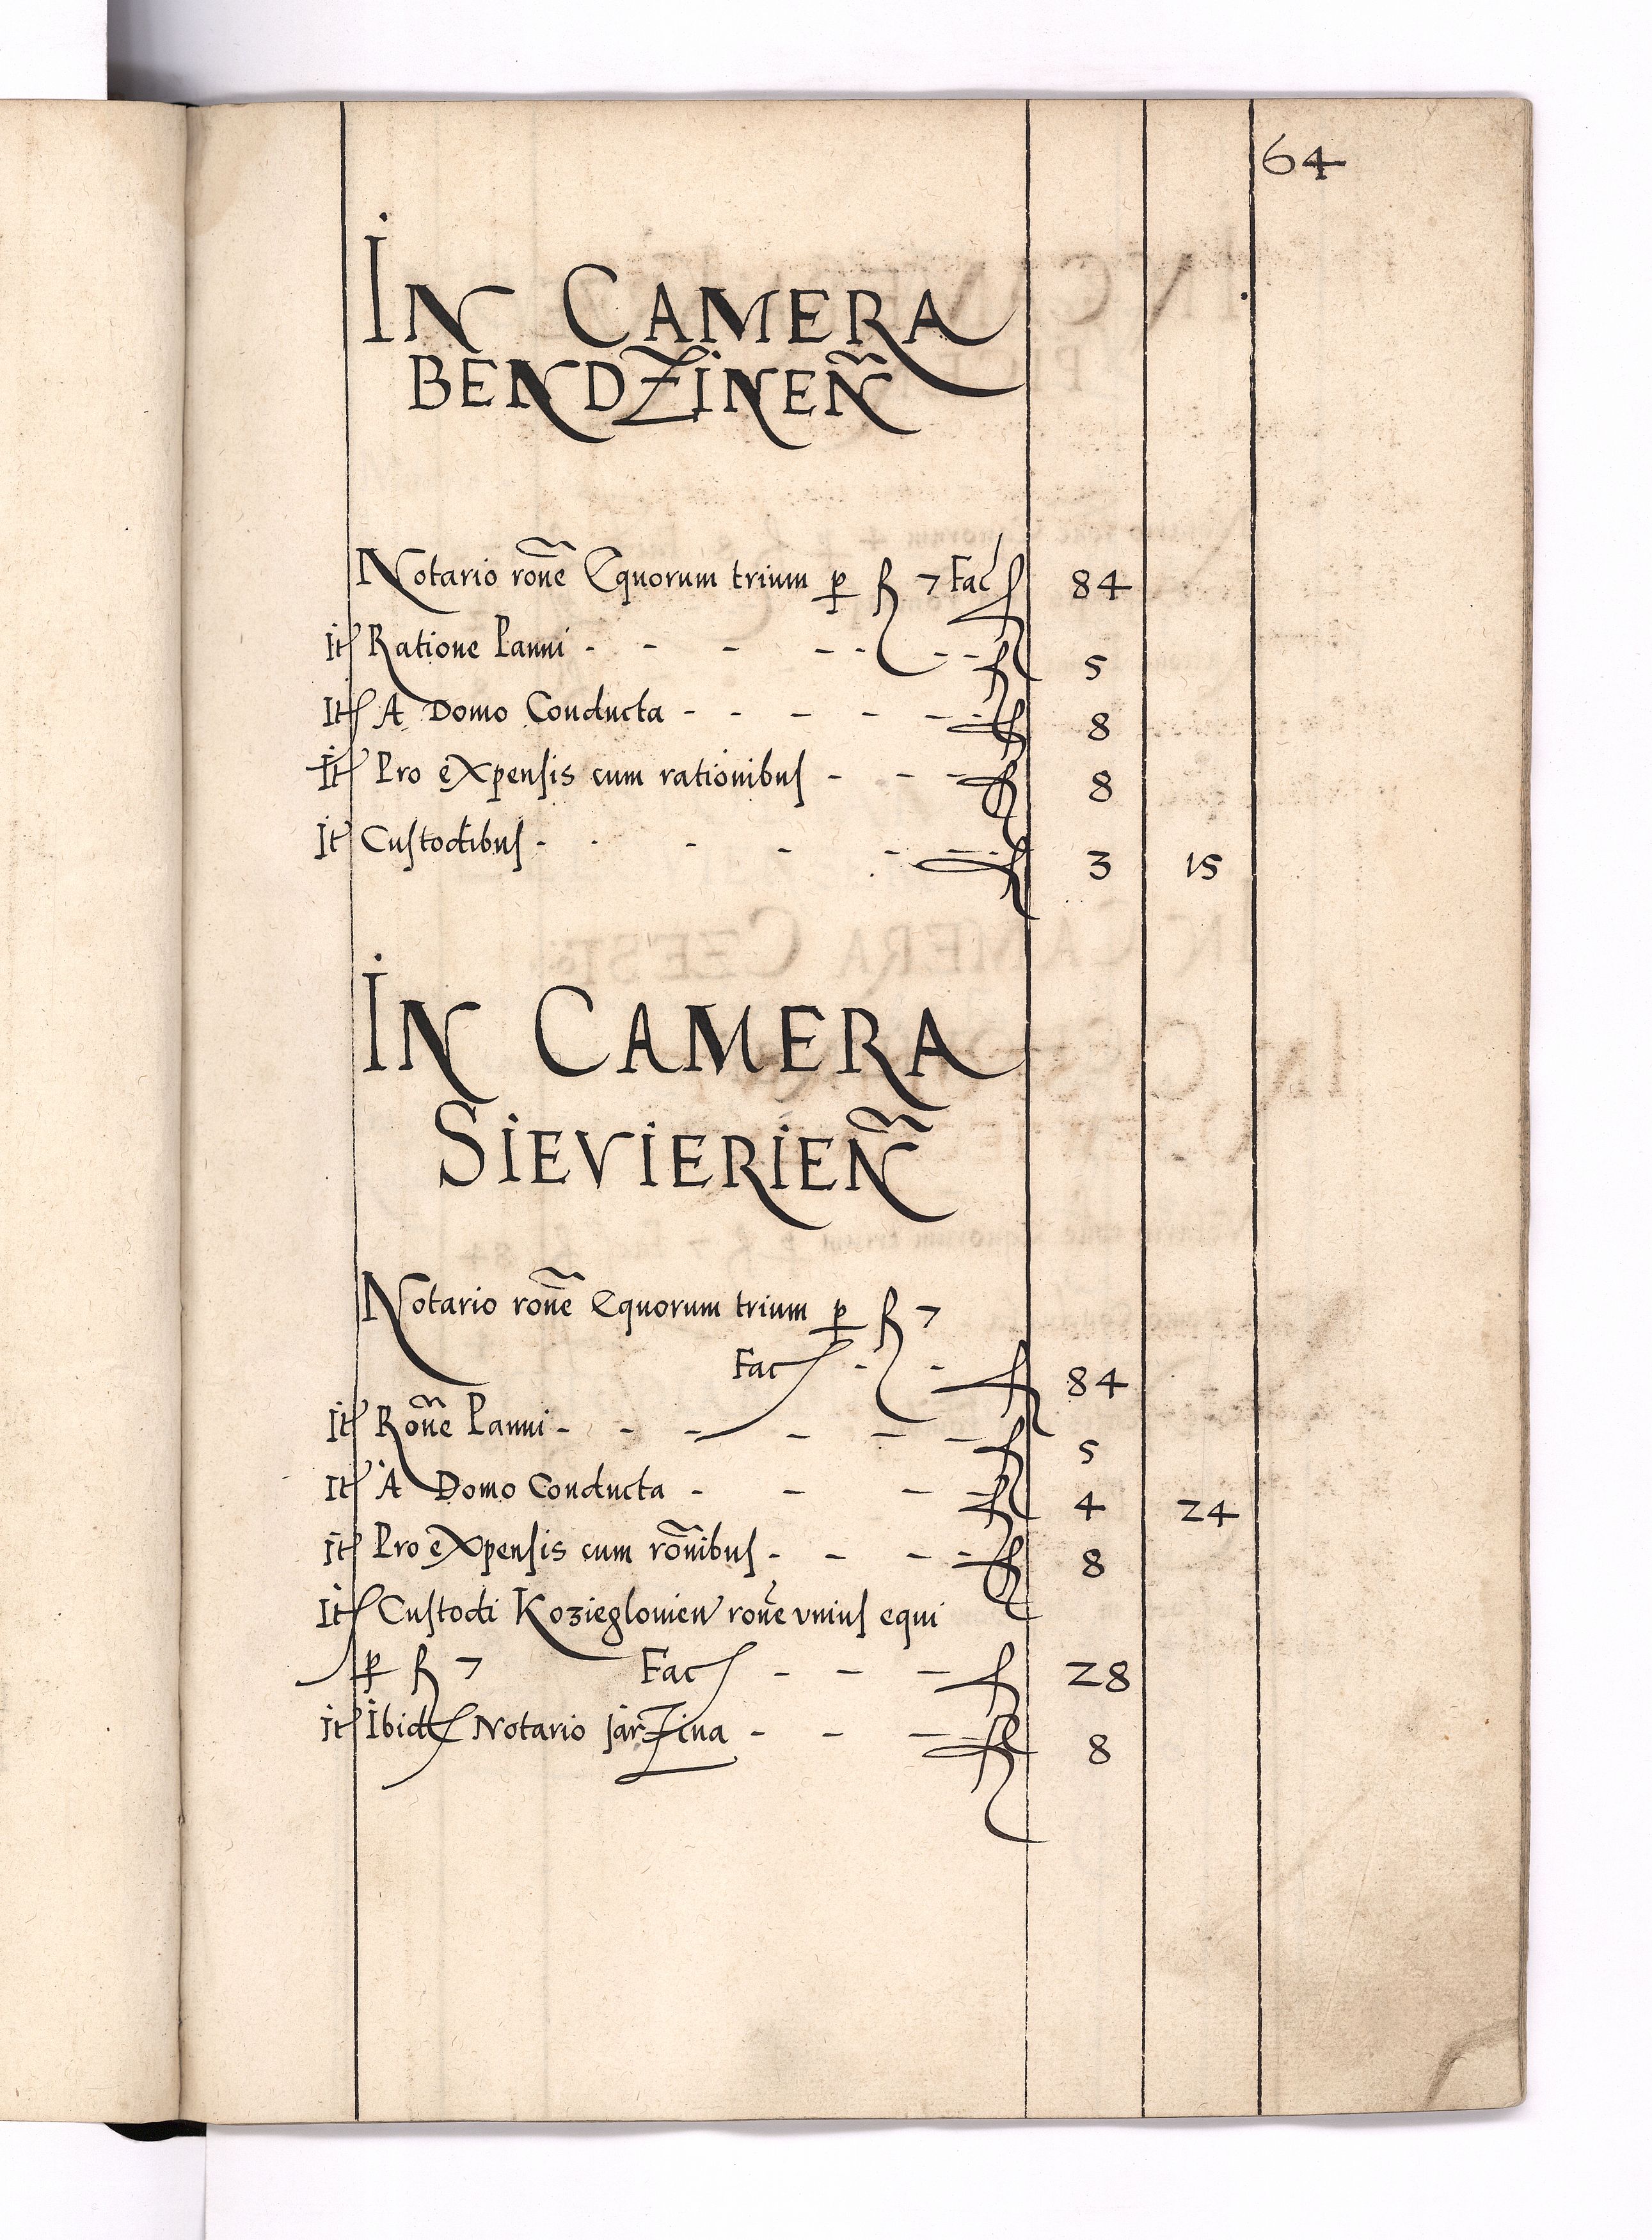 64
IN CAMERA
BENDZINEÑ
Notario rone Equorum trium p fl 7 Fac fl 84
It Ratione Panni - - - - - - - fl 5
It A Domo Conducta - - - - - fl 8
It Pro eXpensis cum rationibus - - - fl 8
It Custodibus - - - - - - fl 3 15
IN CAMERA
SIEVIERIEÑ
Notario rone Equorum trium p fl 7
Fac - - fl 84
It Rone Panni - - - - - - fl 5
It A Domo Conducta - - - - fl 4 24
It Pro eXpensis cum ronibus - - - - fl 8
It Custodi Kozieglovien rone vnius equi
p fl 7 Fac - - - fl 28
It Ibidē Notario jarZina - - - fl 8